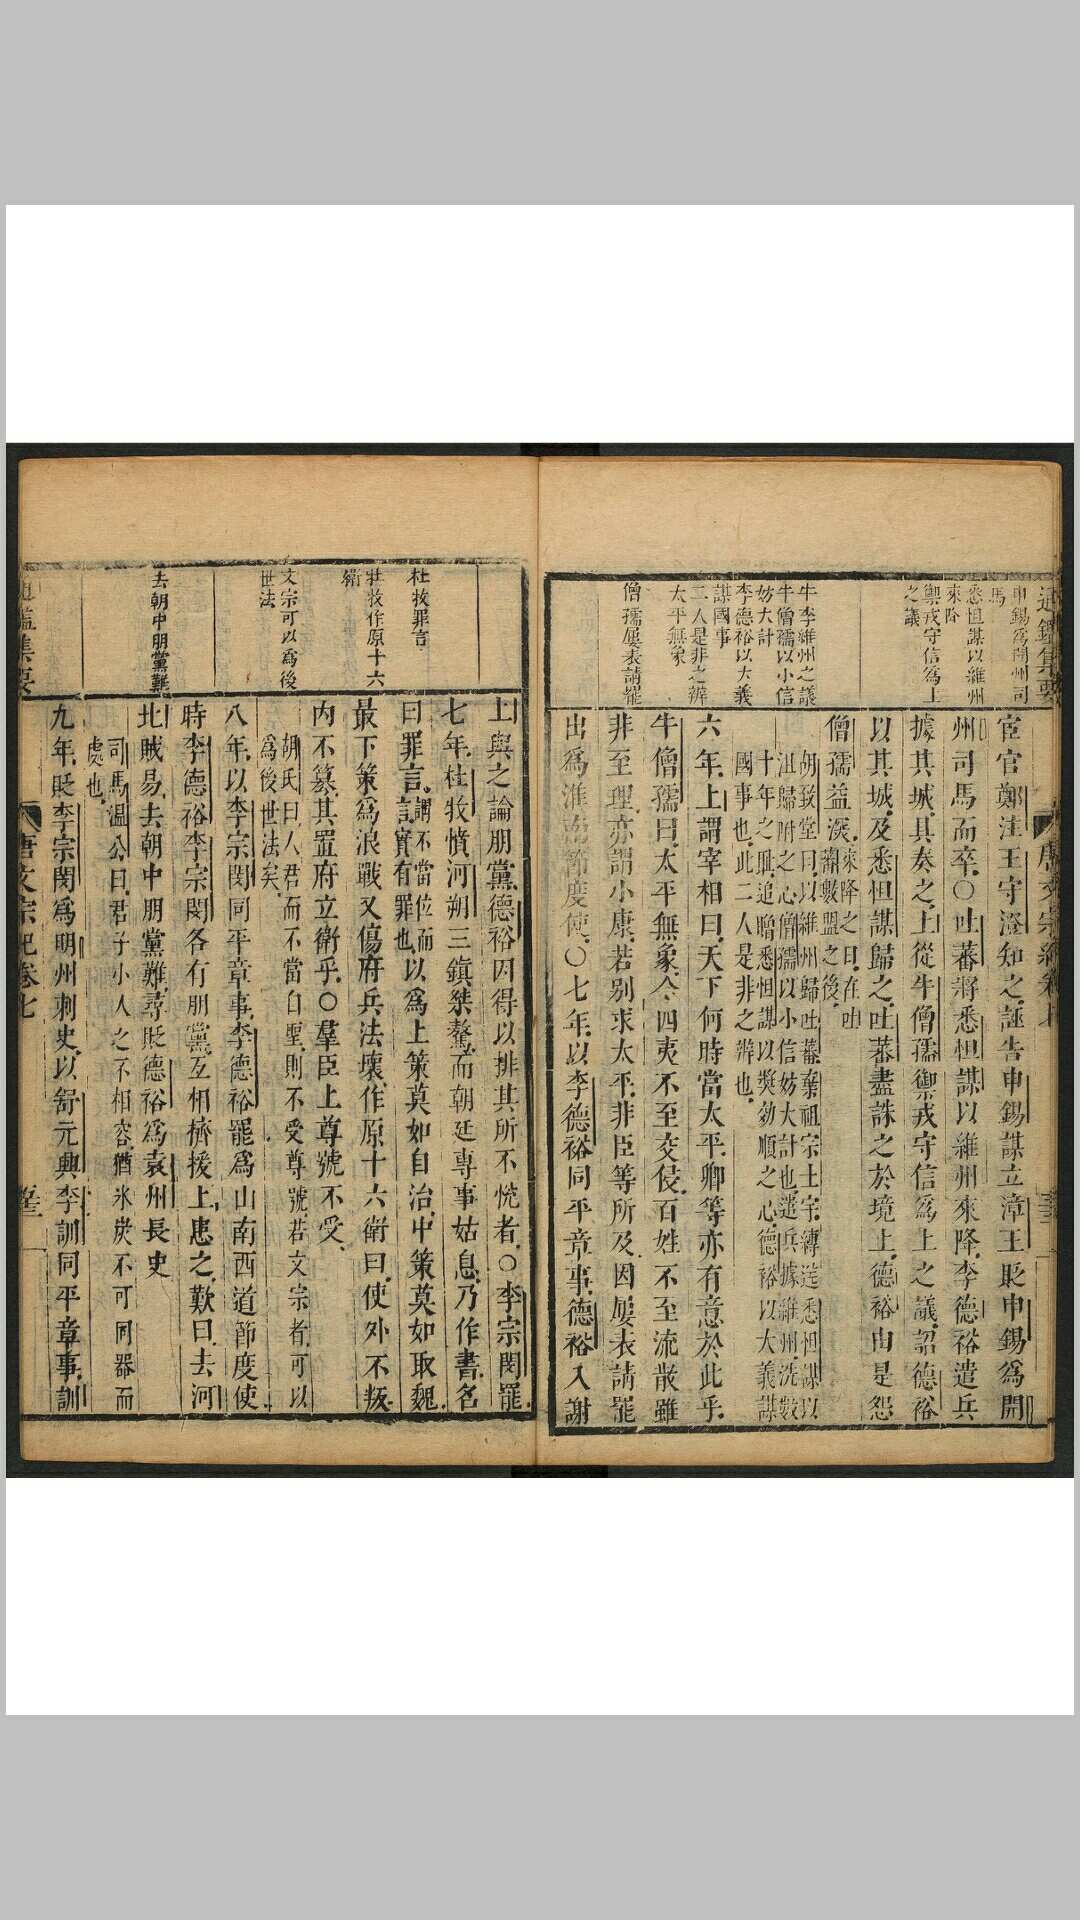 通鑑集要
申錫爲開州司
馬
悉怛謀以維州
來降
禦戎守信爲上
之議
牛李維州之議
牛僧孺以小信
妨大計
李德裕以大義
謀國事
二人是非之辨
太平無象
僧孺屢表請罷
宦官鄭注王守澄知之誣告申錫謀立漳王貶申錫爲開
州司馬而卒〇吐蕃將悉怛謀以維州來降李德裕遣兵
據其城具奏之上從牛僧孺禦戎守信爲上之議詔德裕
以其城及悉怛謀歸之吐蕃盡誅之於境上德裕由是怨
僧孺益深來降之日在吐
蕃數盟之後
胡致堂曰以維州歸吐蕃棄祖宗土宇縳送悉怛謀以
沮歸附之心僧孺以小信妨大計也遣兵據維州洗數
十年之恥追贈悉怛謀以獎効順之心德裕以大義謀
國事也此二人是非之辨也
六年上謂宰相曰天下何時當太平卿等亦有意於此乎
牛僧孺曰太平無象今四夷不至交侵百姓不至流散雖
非至理亦謂小康若别求太平非臣等所及因屢表請罷
出爲淮南節度使〇七年以李德裕同平章事德裕入謝
杜牧罪言
杜牧作原十六
衛
文宗可以爲後
世法
去朝中朋黨難
上與之論朋黨德裕因得以排其所不悅者〇李宗閔罷
七年杜牧憤河朔三鎮桀驁而朝廷專事姑息乃作書名
曰罪言謂不當位而
言實有罪也以爲上策莫如自治中策莫如取魏
最下策爲浪戰又傷府兵法壞作原十六衛曰使外不叛
內不篡其置府立衛乎〇羣臣上尊號不受
胡氏曰人君而不當自聖則不受尊號若文宗者可以
爲後世法矣
八年以李宗閔同平章事李德裕罷爲山南西道節度使
時李德裕李宗閔各有朋黨互相擠援上患之歎曰去河
北賊易去朝中朋黨難尋貶德裕爲袁州長史
司馬溫公曰君子小人之不相容猶氷炭不可同器而
處也
九年貶李宗閔爲明州刺史以舒元輿李訓同平章事訓
通鑑集要
唐文宗紀卷七